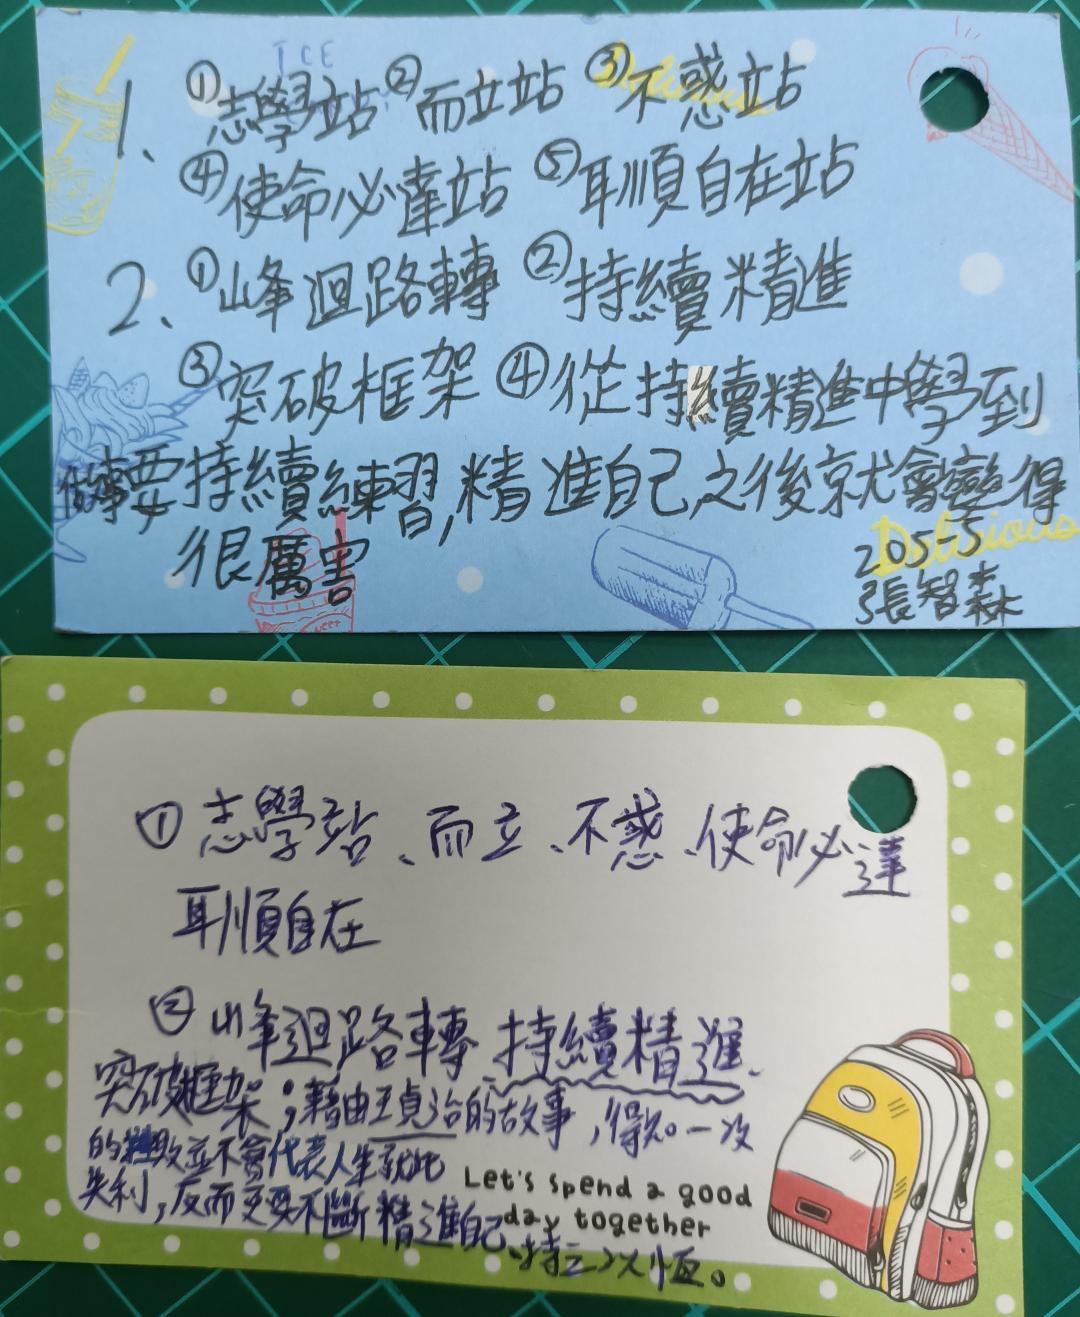 ICE
1、①志學站 ②而立站 ③不惑站
④使命必達站 ⑤耳順自在站
2、①山峰迴路轉 ②持續精進
③突破框架 ④從持續精進中學到
做事要持續練習,精進自己之後就會變得
很厲害
Delicious
205-5
張智森
①志學站、而立、不惑、使命必達
耳順自在
②山峰迴路轉 持續精進、
突破框架;藉由王貞治的故事,得知一次
的失敗並不會代表人生就此
失利,反而更要不斷精進自己、持之以恆。
Let's spend a good
day together